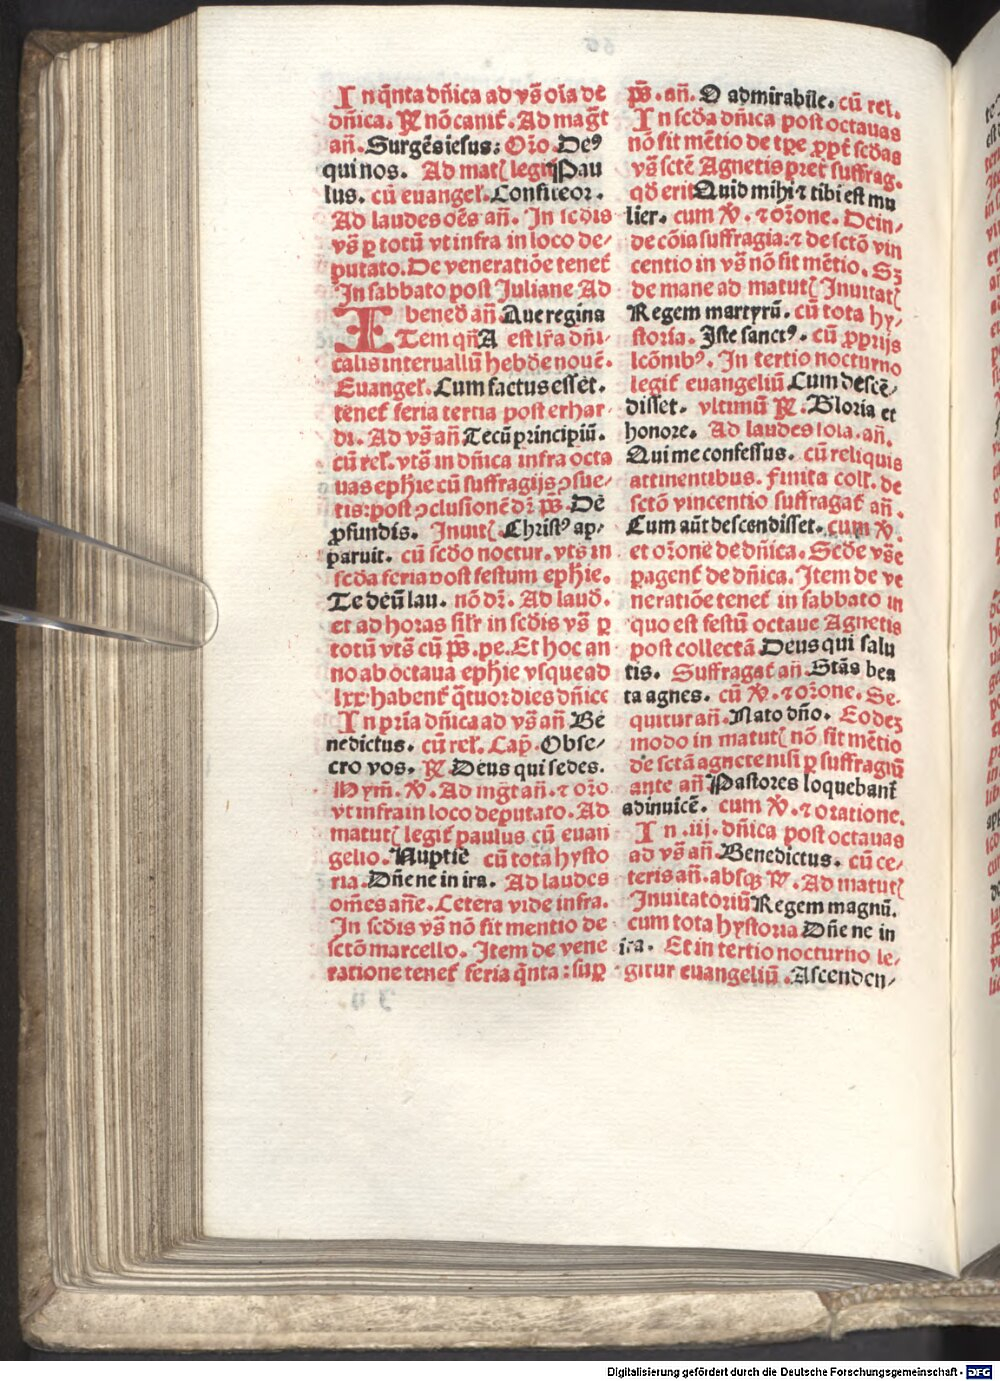 In q̄nta dñica ad vs̄ oīa de
dñica. ℞ nō canit᷑. Ad mag᷑t
añ. Surgēs iesus: Or̄o. Deꝰ
qui nos. Ad mat᷑ legit᷑ Pau
lus. cū euangeł. Confiteor.
Ad laudes oēs añ. In scd̄is
vs̄ ꝑ totū vt infra in loco de⸗
putato. De veneratiōe tenet᷑
In sabbato post Juliane Ad
bened̄ añ Aue regina
ITem qn̄ A est l̄ra dñi⸗
calis interuallū hebd̄e nouē.
Euangeł. Cum factus esset.
tenet᷑ feria tertia post erhar⸗
di. Ad vs̄ añ Tecū principiū.
cū reł. vts̄ in dñica infra octa
uas ephīe cū suffragijs ↄsue⸗
tis: post ↄclusionē dr̄ p̄s̄. De
ꝓfundis. Inuit᷑. Christꝰ ap⸗
paruit. cū scd̄o noctur. vts̄ in
scd̄a feria post festum ephīe.
Te deū lau. nō dr̄. Ad laud̄.
et ad horas sil̄r in scd̄is vs̄ ꝑ
totū vts̄ cū p̄s̄. pe. Et hoc an
no ab octaua ephīe vsque ad
lxx: habent᷑ q̄tuor dies dñice
In pr̄ia dñica ad vs̄ añ Be
nedictus. cū reł. Cap̄. Obse⸗
cro vos. ℞ Deus qui sedes.
Hym̄. ℣. Ad mg᷑t añ. ⁊ or̄o
vt infra in loco deputato. Ad
matut᷑ legit᷑ paulus cū euan
gelio. Nuptie cū tota hysto
ria. Dñe ne in ira. Ad laudes
om̄es añe. Cetera vide infra.
In scd̄is vs̄ nō fit mentio de
sctō marcello. Item de vene
ratione tenet᷑ feria q̄nta: sup̄
p̄s̄. añ. O admirabile. cū reł.
In scd̄a dñica post octauas
nō fit mētio de tp̄e ꝓpt̄ scd̄as
vs̄ sctē Agnetis pret̄ suffrag.
qd̄ erit Quid mihi ⁊ tibi est mu
lier. cum ℣. ⁊ or̄one. Dein⸗
de cōia suffragia: ⁊ de sctō vin
centio in vs̄ nō fit mētio. Sꝫ
de mane ad matut᷑ Inuitat᷑
Regem martyrū. cū tota hy⸗
storia. Iste sanctꝰ. cū ꝓprijs
lcōnibꝰ. In tertio nocturno
legit᷑ euangeliū Cum descē⸗
disset. vltimū ℞. Gloria et
honore. Ad laudes sola. añ.
Qui me confessus. cū reliquis
attinentibus. finita coll̄. de
sctō vincentio suffragat᷑ añ.
Cum aūt descendisset. cum ℣.
et or̄one de dñica. Sed̄e vs̄e
pagent᷑ de dñica. Item de ve
neratiōe tenet᷑ in sabbato in
quo est festū octaue Agnetis
post collectā Deus qui salu
tis. Suffragat᷑ añ. Stās bea
ta agnes. cū ℣. ⁊ or̄one. Se⸗
quitur añ. Nato dño. Eodeꝫ
modo in matut᷑ nō fit mētio
de sctā agnete nisi ꝑ suffragiū
ante añ Pastores loquebant᷑
adinuicē. cum ℣. ⁊ oratione.
In .iij. dñica post octauas
ad vs̄ añ. Benedictus. cū ce⸗
teris añ. absqꝫ ℞. Ad matut᷑
Inuitatoriū Regem magnū.
cum tota hystoria Dñe ne in
ira. Et in tertio nocturno le⸗
gitur euangeliū. Ascenden⸗
Digitalisierung gefördert durch die Deutsche Forschungsgemeinschaft - DFG